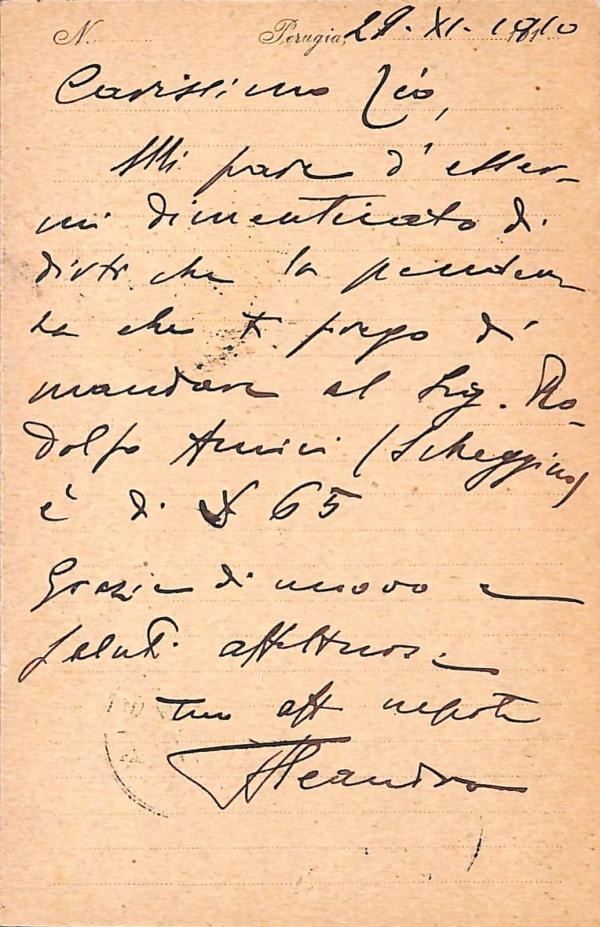 N. Perugia, 29. XI. 1910
Carissimo Zio,
Mi pare d'esser-
mi dimenticato di
dirti che la penden
za che ti prego di
mandare al Sig. Ro-
dolfo Amici (Scheggino)
è di £ 65
Grazie di nuovo e
saluti affettuosi.
tuo aff nepote